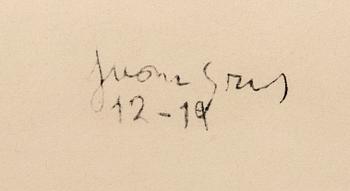 Juan Gris
12-19